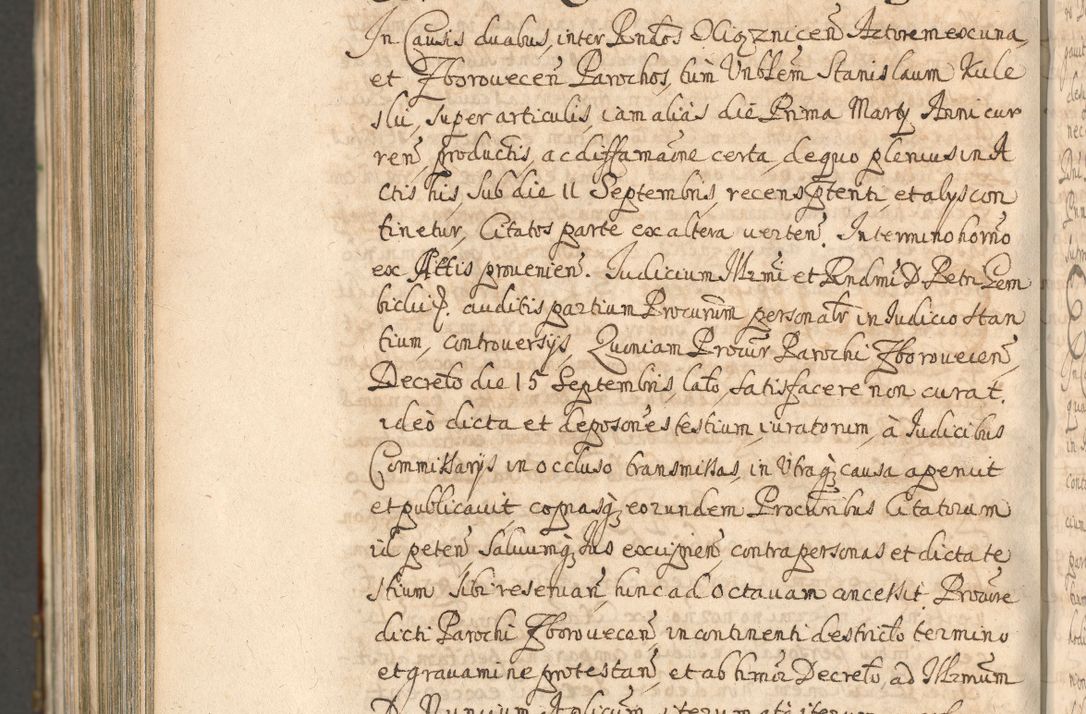 In Causis duabus, inter Rndos Oliqznicen̄ Actorem ex una,
et Zborovecen̄ Parochos, tum Unblem Stanislaum Kule
slii, super articulis, iam alias die Prima Martÿ Anni cur
ren̄ productis, ac diffamãone certa, de quo plenius in A
ctis his, sub die 11 Septembris, recens ptenti et alÿs con
tinetur, Citatos parte ex altera verten̄. In termino horno
ex Attis provenien̄. Iudicium Illrmi et Rndmi D Petri Gem
biclii p. auditis partium Procurum personalr in Iudicio stan
tium, controversÿs, Quoniam Procur Parochi Zborovecen̄
Decreto die 15 Septembris lato, satisfacere non curat.
ideò dicta et deposones testium, iuratorum, à Iudicibus
Commissarÿs in occluso transmissas, in Utraqz causa aperuit
et publicavit, copiasqz eorundem Procuribus Citatorum
id peten̄ Salvumqz Ius excipien̄ contra personas et dicta te
stium sibi reservan̄, hinc ad octavam ancessit. Procure
dicti Parochi Zborovecen̄, in continenti de stricto termino
et gravamine protestan̄, et ab himoi Decreto, ad Illrmum
D. Nuncium Aplicum